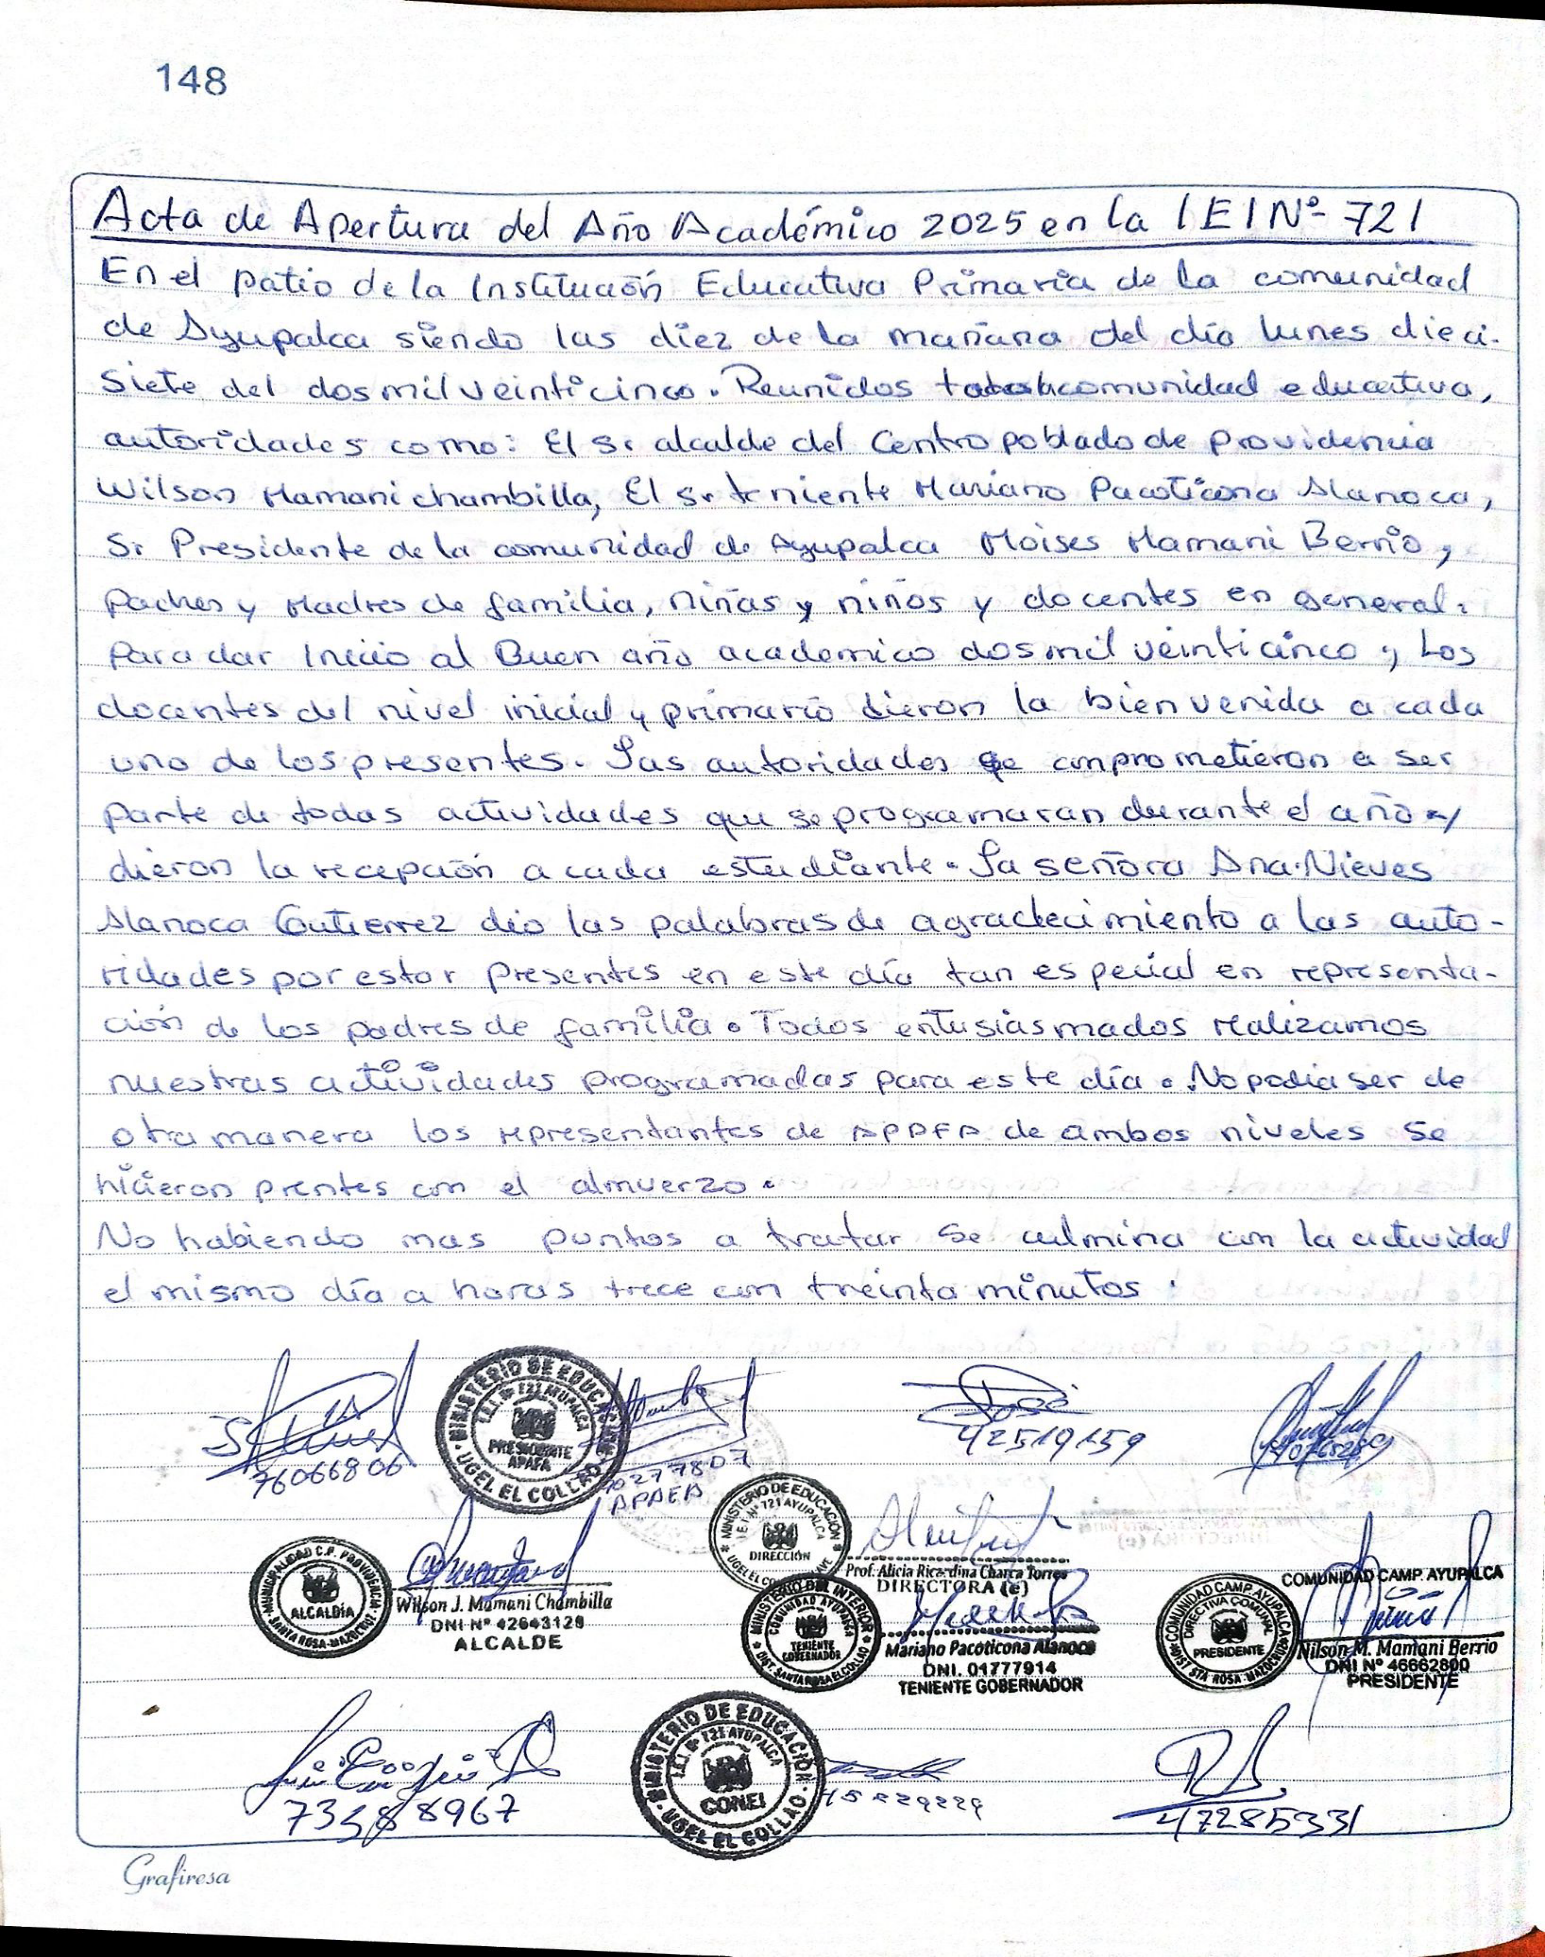 148
Acta de Apertura del Año Académico 2025 en la IEI Nº 721
En el patio de la Institución Educativa Primaria de la comunidad
de Ayupalca siendo las diez de la mañana del día lunes dieci-
siete del dos mil veinticinco. Reunidos comunidad educativa,
autoridades como: El Sr alcalde del Centro poblado de Providencia
Wilson Mamani chambilla, El Sr teniente Mariano Pacoticona Alanoca,
Sr Presidente de la comunidad de Ayupalca Moises Mamani Berrio,
Padres y Madres de familia, niñas y niños y docentes en general.
Para dar Inicio al Buen año academico dos mil veinticinco, Los
docentes del nivel inicial y primario dieron la bienvenida a cada
uno de los presentes. Las autoridades se comprometieron a ser
parte de todas actividades que se programaran durante el año y
dieron la recepción a cada estudiante. La señora Ana Nieves
Alanoca Gutierrez dio las palabras de agradecimiento a las auto-
ridades por estar presentes en este día tan especial en representa-
ción de los padres de familia. Todos entusiasmados realizamos
nuestras actividades programadas para este día. No podia ser de
otra manera los representantes de APAFA de ambos niveles se
hicieron prentes con el almuerzo.
No habiendo mas puntos a tratar se culmina con la actividad
el mismo día a horas trece con treinta minutos.
76066806
MINISTERIO DE EDUCACIÓN
I.E.I. Nº 721 AYUPALCA
PRESIDENTE
APAFA
UGEL EL COLLAO
70277807
APAFA
42519159
MUNICIPALIDAD C.P. PROVIDENCIA
ALCALDÍA
SANTA ROSA-MAZOCRUZ
Wilson J. Mamani Chambilla
DNI Nº 42643128
ALCALDE
MINISTERIO DE EDUCACIÓN
I.E.I Nº 721 AYUPALCA
DIRECCIÓN
Prof. Alicia Ricardina Charca Torres
DIRECTORA (e)
MINISTERIO DEL INTERIOR
COMUNIDAD AYUPALCA
TENIENTE
GOBERNADOR
DIST. SANTA ROSA EL COLLAO
Mariano Pacoticona Alanoca
DNI. 01777914
TENIENTE GOBERNADOR
COMUNIDAD CAMP. AYUPALCA
DIRECTIVA COMUNAL
PRESIDENTE
DIST STA ROSA-MAZOCRUZ
COMUNIDAD CAMP. AYUPALCA
Nilson M. Mamani Berrio
DNI Nº 46662800
PRESIDENTE
73588967
MINISTERIO DE EDUCACIÓN
I.E.I. Nº 721 AYUPALCA
CONEI
UGEL EL COLLAO
47285331
Grafiresa